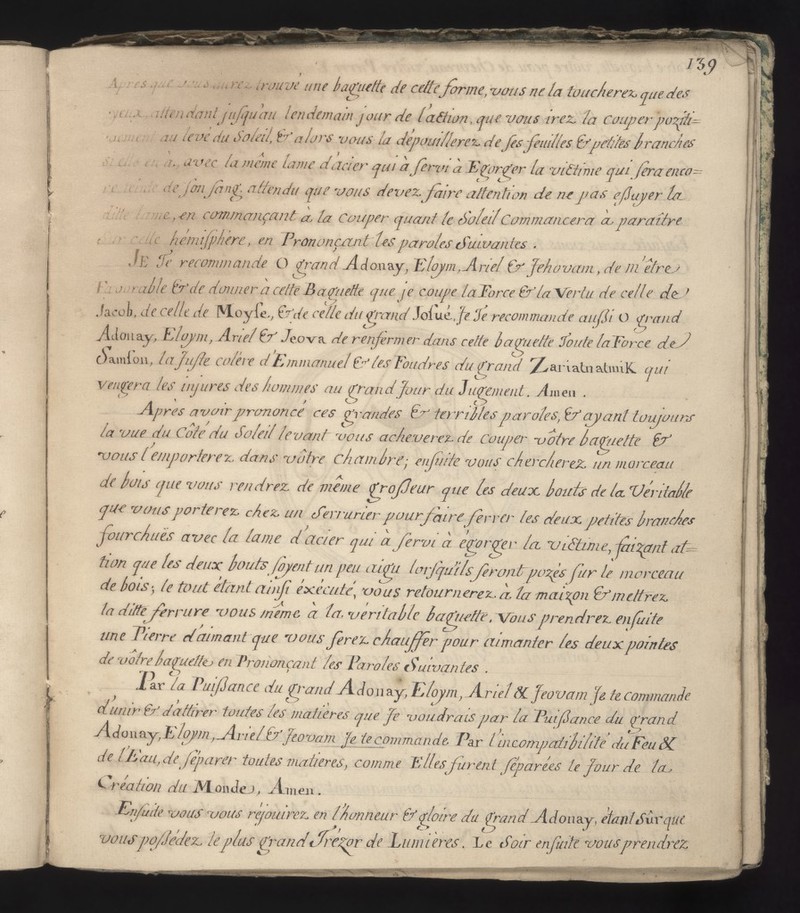 139
Après que vous aurez trouvé une baguette de cette forme, vous ne la toucherez que des
yeux, attendant jusqu'au lendemain jour de l'action, que vous irez la couper poziti=
vement au levé du Soleil, & alors vous la dépouillerez de ses feuilles & petites branches
si elle en a, avec la même lame d'acier qui à servi à Egorger la victime qui sera enco=
re teinte de son sang, attendu que vous devez faire attention de ne pas eßuyer la
ditte lame, en commançant à la couper quant le Soleil Commancera à paraître
Sur celle hémisphère, en Prononçant les paroles Suivantes.
JE Te recommande O grand Adonay, Eloym, Ariel & Jehovam, de m'être
Favorable & de donner à cette Baguette que je coupe la Force & la Vertu de celle de
Jacob, de celle de Moyse, & de celle du grand Josué. Je Te recommande außi O grand
Adonay, Eloym, Ariel & Jeova de renfermer dans cette baguette Toute la Force de
Samson, la Juste colère d'Emmanuel & les Foudres du grand Zariatnatmik qui
Vengera les injures des hommes au grand Jour du Jugement. Amen.
Après avoir prononcé ces grandes & terribles paroles, & ayant toujours
la vue du Côté du Soleil levant vous acheverez de couper vôtre baguette &
vous l'emporterez dans vôtre chambre; ensuite vous chercherez un morceau
de bois que vous rendrez de même großeur que les deux bouts de la Véritable
que vous porterez chez un Serrurier pour faire ferrer les deux petites branches
fourchuës avec la lame d'acier qui à servi à égorger la victime, faizant at=
tion que les deux bouts soyent un peu aigu lorsqu'ils seront pozés sur le morceau
de bois; le tout étant ainsi éxécuté, vous retournerez à la maizon & mettrez
la ditte ferrure vous même à la véritable baguette. Vous prendrez ensuite
une Pierre d'aimant que vous ferez chauffer pour aimanter les deux pointes
de vôtre baguette en Prononçant les Paroles Suivantes.
Par la Puißance du grand Adonay, Eloym, Ariel & Jeovam Je te commande
d'unir & d'attirer toutes les matières que Je voudrais par la Puißance du grand
Adonay, Eloym, Ariel & Jeovam Je te commande Par l'incompatibilité du Feu &
de l'Eau, de séparer toutes matieres, comme Elles furent séparées le Jour de la
Création du Monde, Amen.
Ensuite vous vous réjouirez en l'honneur & gloire du grand Adonay, étant Sûr que
vous poßédez le plus grand Trézor de Lumières. Le Soir ensuite vous prendrez